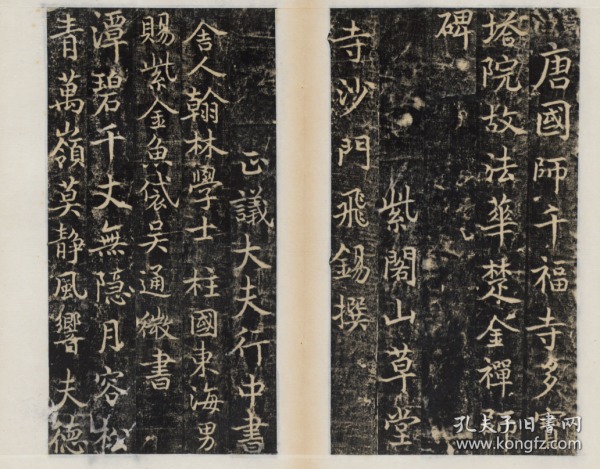 唐國師千福寺多寶
塔院故法華楚金禪師
碑
紫閣山草堂
寺沙門飛錫撰
正議大夫行中書
舍人翰林學士柱國東海男
賜紫金魚袋吳通微書
潭碧千丈無隱月容松
青萬嶺莫静風響夫德
孔夫子旧书网
www.kongfz.com